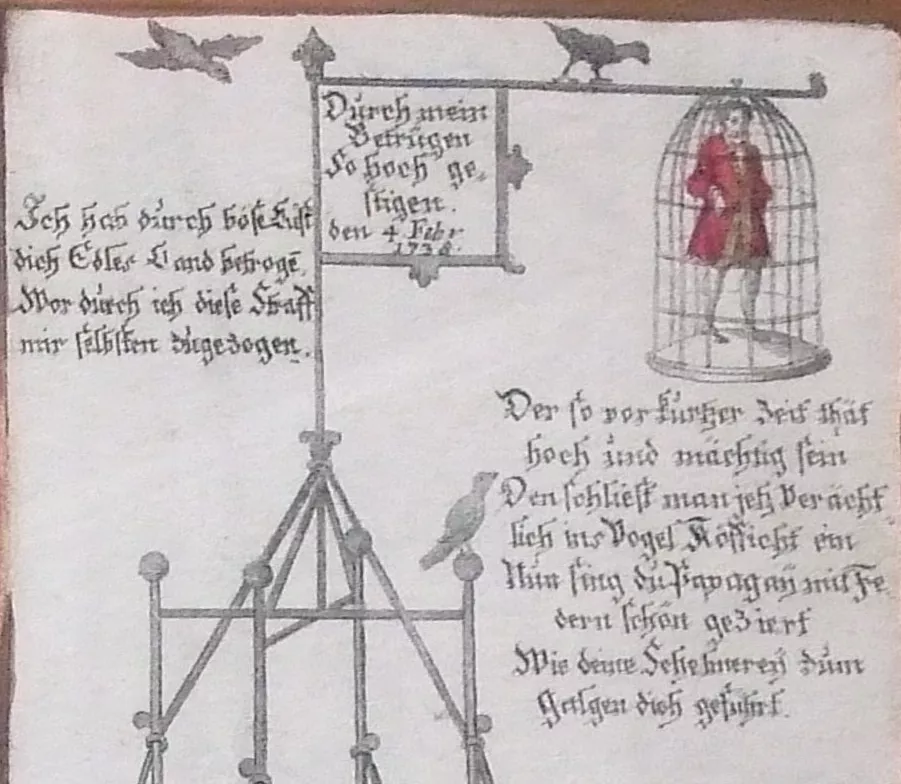 Durch mein
Betrügen
So hoch ge-
stigen.
den 4 Febr
1738.
Ich hab durch böse Lust
dich Edles Land betrogē,
Wor durch ich diese Straff
mir selbsten zugezogen.
Der so vor kurtzer Zeit thät
hoch und mächtig sein
Den schliest man jetz Verächt
lich ins Vogel Köfficht ein
Nun sing du Papagaÿ mit Fe
dern schön geziert
Wie deine Schelmereÿ zum
Galgen dich geführt.